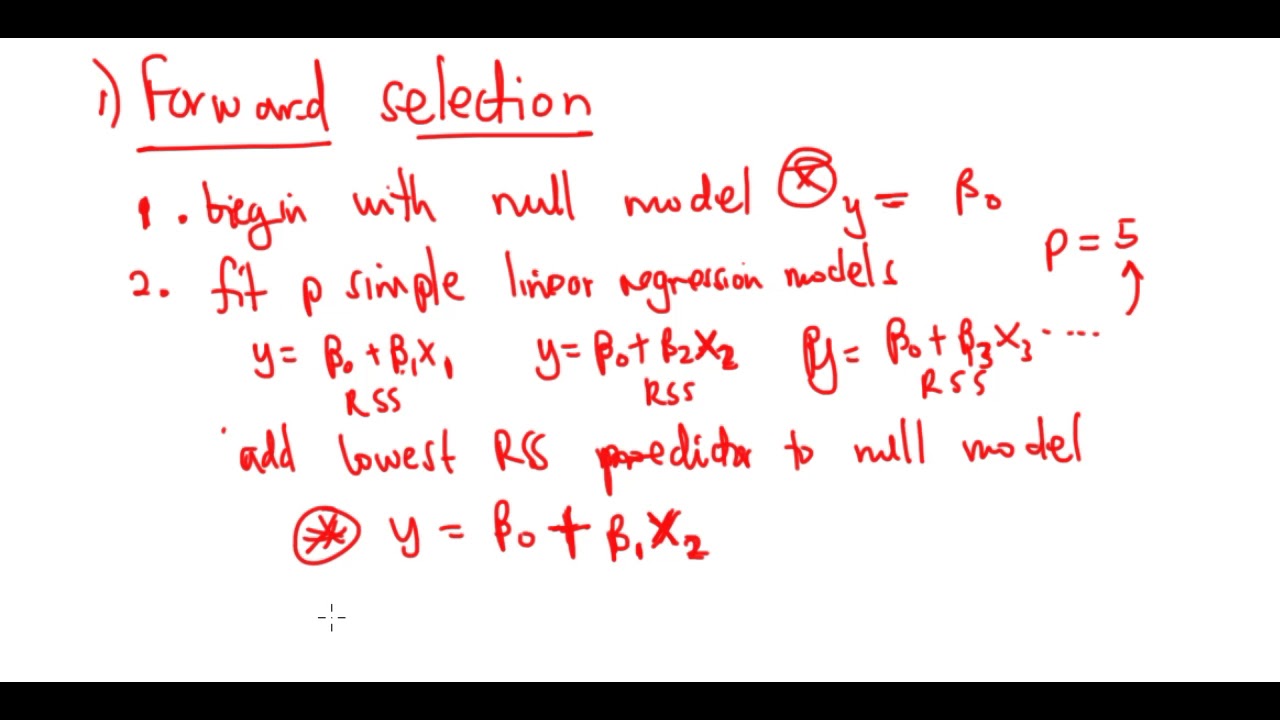 1) Forward selection
1. begin with null model * y = β₀
p = 5
2. fit p simple linear regression models
y = β₀ + β₁x₁ y = β₀ + β₂X₂ y = β₀ + β₃X₃ ....
RSS RSS RSS
add lowest RSS predictor to null model
* y = β₀ + β₁X₂